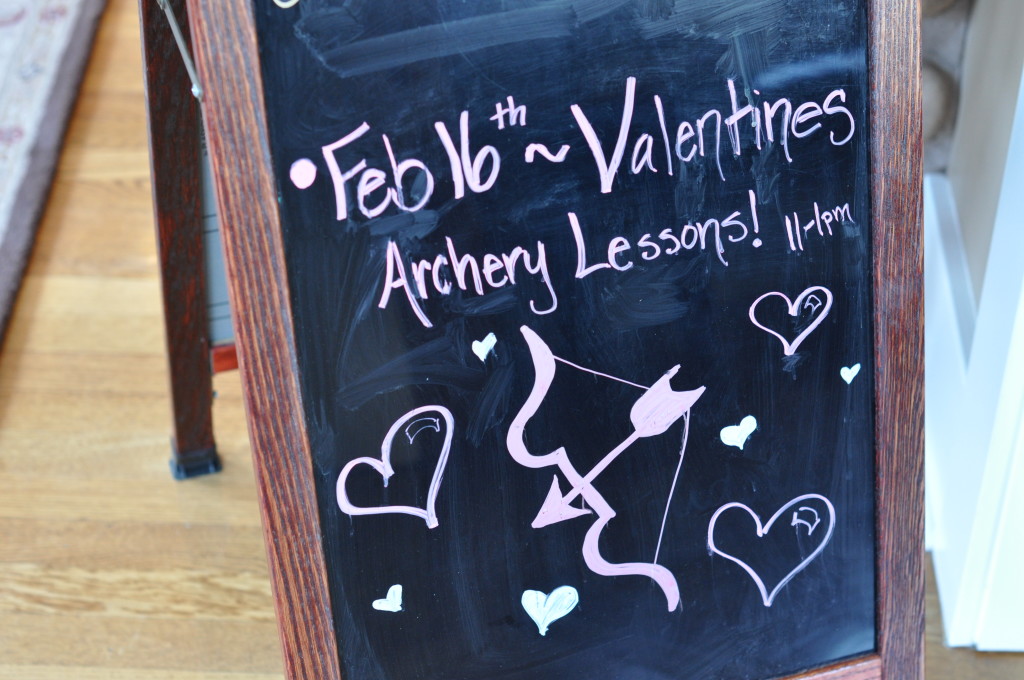 • Feb 16th ~ Valentines
Archery Lessons! 11-1pm